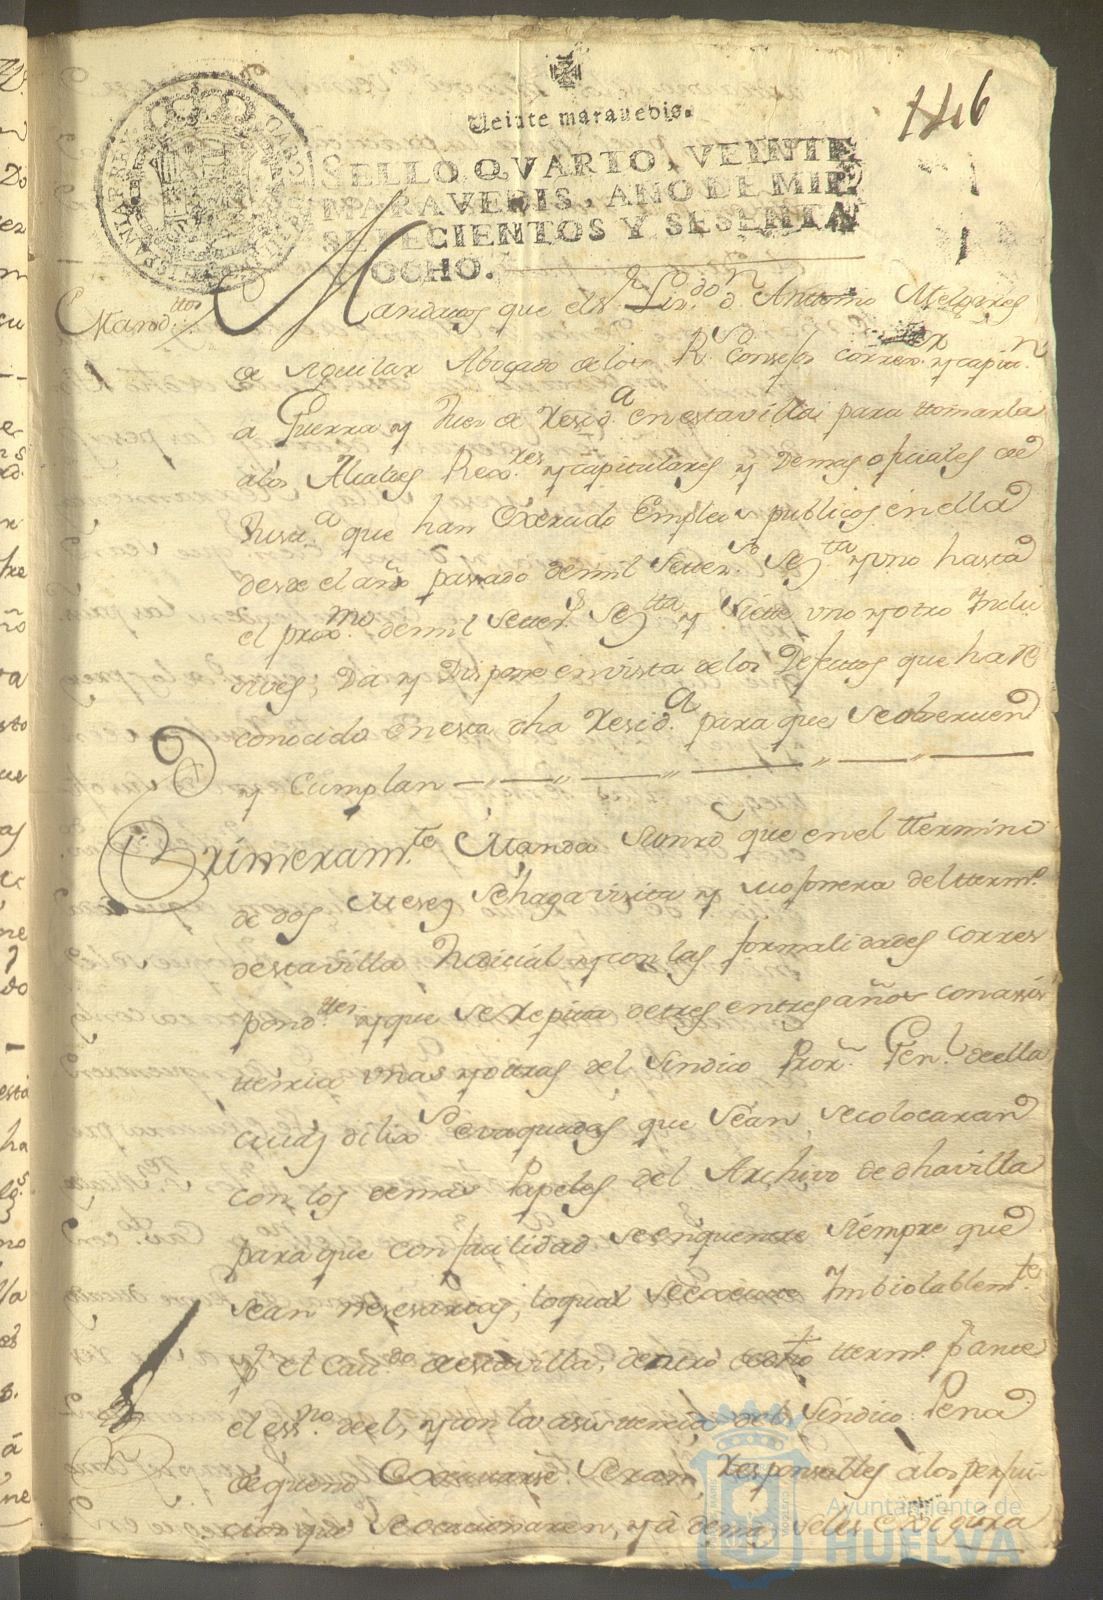 146
Veinte marauedis.
SELLO QVARTO, VEINTE
MARAVEDIS, AÑO DE MIL
SETECIENTOS Y SESENTA
OCHO.
Mand.ttos
Mandattos que el s.r Liz.do d.n Antonio Melgares
de Aguilar Abogado delos R.s Consejos correx.r y capitn
a Guerra y Juez de Resid.a en esta villa para ttomarla
alos Alcaldes Rexi.res y capitulares y demas oficiales de
Justi.a que han Exercido Empleos publicos en ella
desde el año passado de mil Settez.s Ses.tta y uno hasta
el prox.mo de mil Settez.s Ses.tta y Siette uno y otro Inclu
sives, Da y Dispone en vista delos Defectos que ha re
conocido en esta dha Resid.a para que Se obseruen
y Cumplan
Primeram.te Manda Su mrd que en el ttermino
de dos Meses Se haga visita y Mojonera del tterm.o
de esta villa Judicial y con las formalidades corres
pond.ttes y que Se Repita de tres en tres años con assis
ttencia unas y otras del Sindico Pror. Gen.l de ella
cuias dilix.s evaquadas que Sean, Se colocaran
con los demas Papeles del Archivo de dha villa
para que con facilidad Se enquentre Siempre que
Sean nesesarias, lo qual Se Execute Imbiolablem.te
p.r el Cau.do de esta villa, dentro de dho tterm.o p.r ante
el ess.no de el, y con la asisttencia del Sindico Pena
de que no Executarse Seran Responsables alos perjui
cios que Se ocacionaren, y à demas Se les exixira
Ayuntamiento de
HUELVA